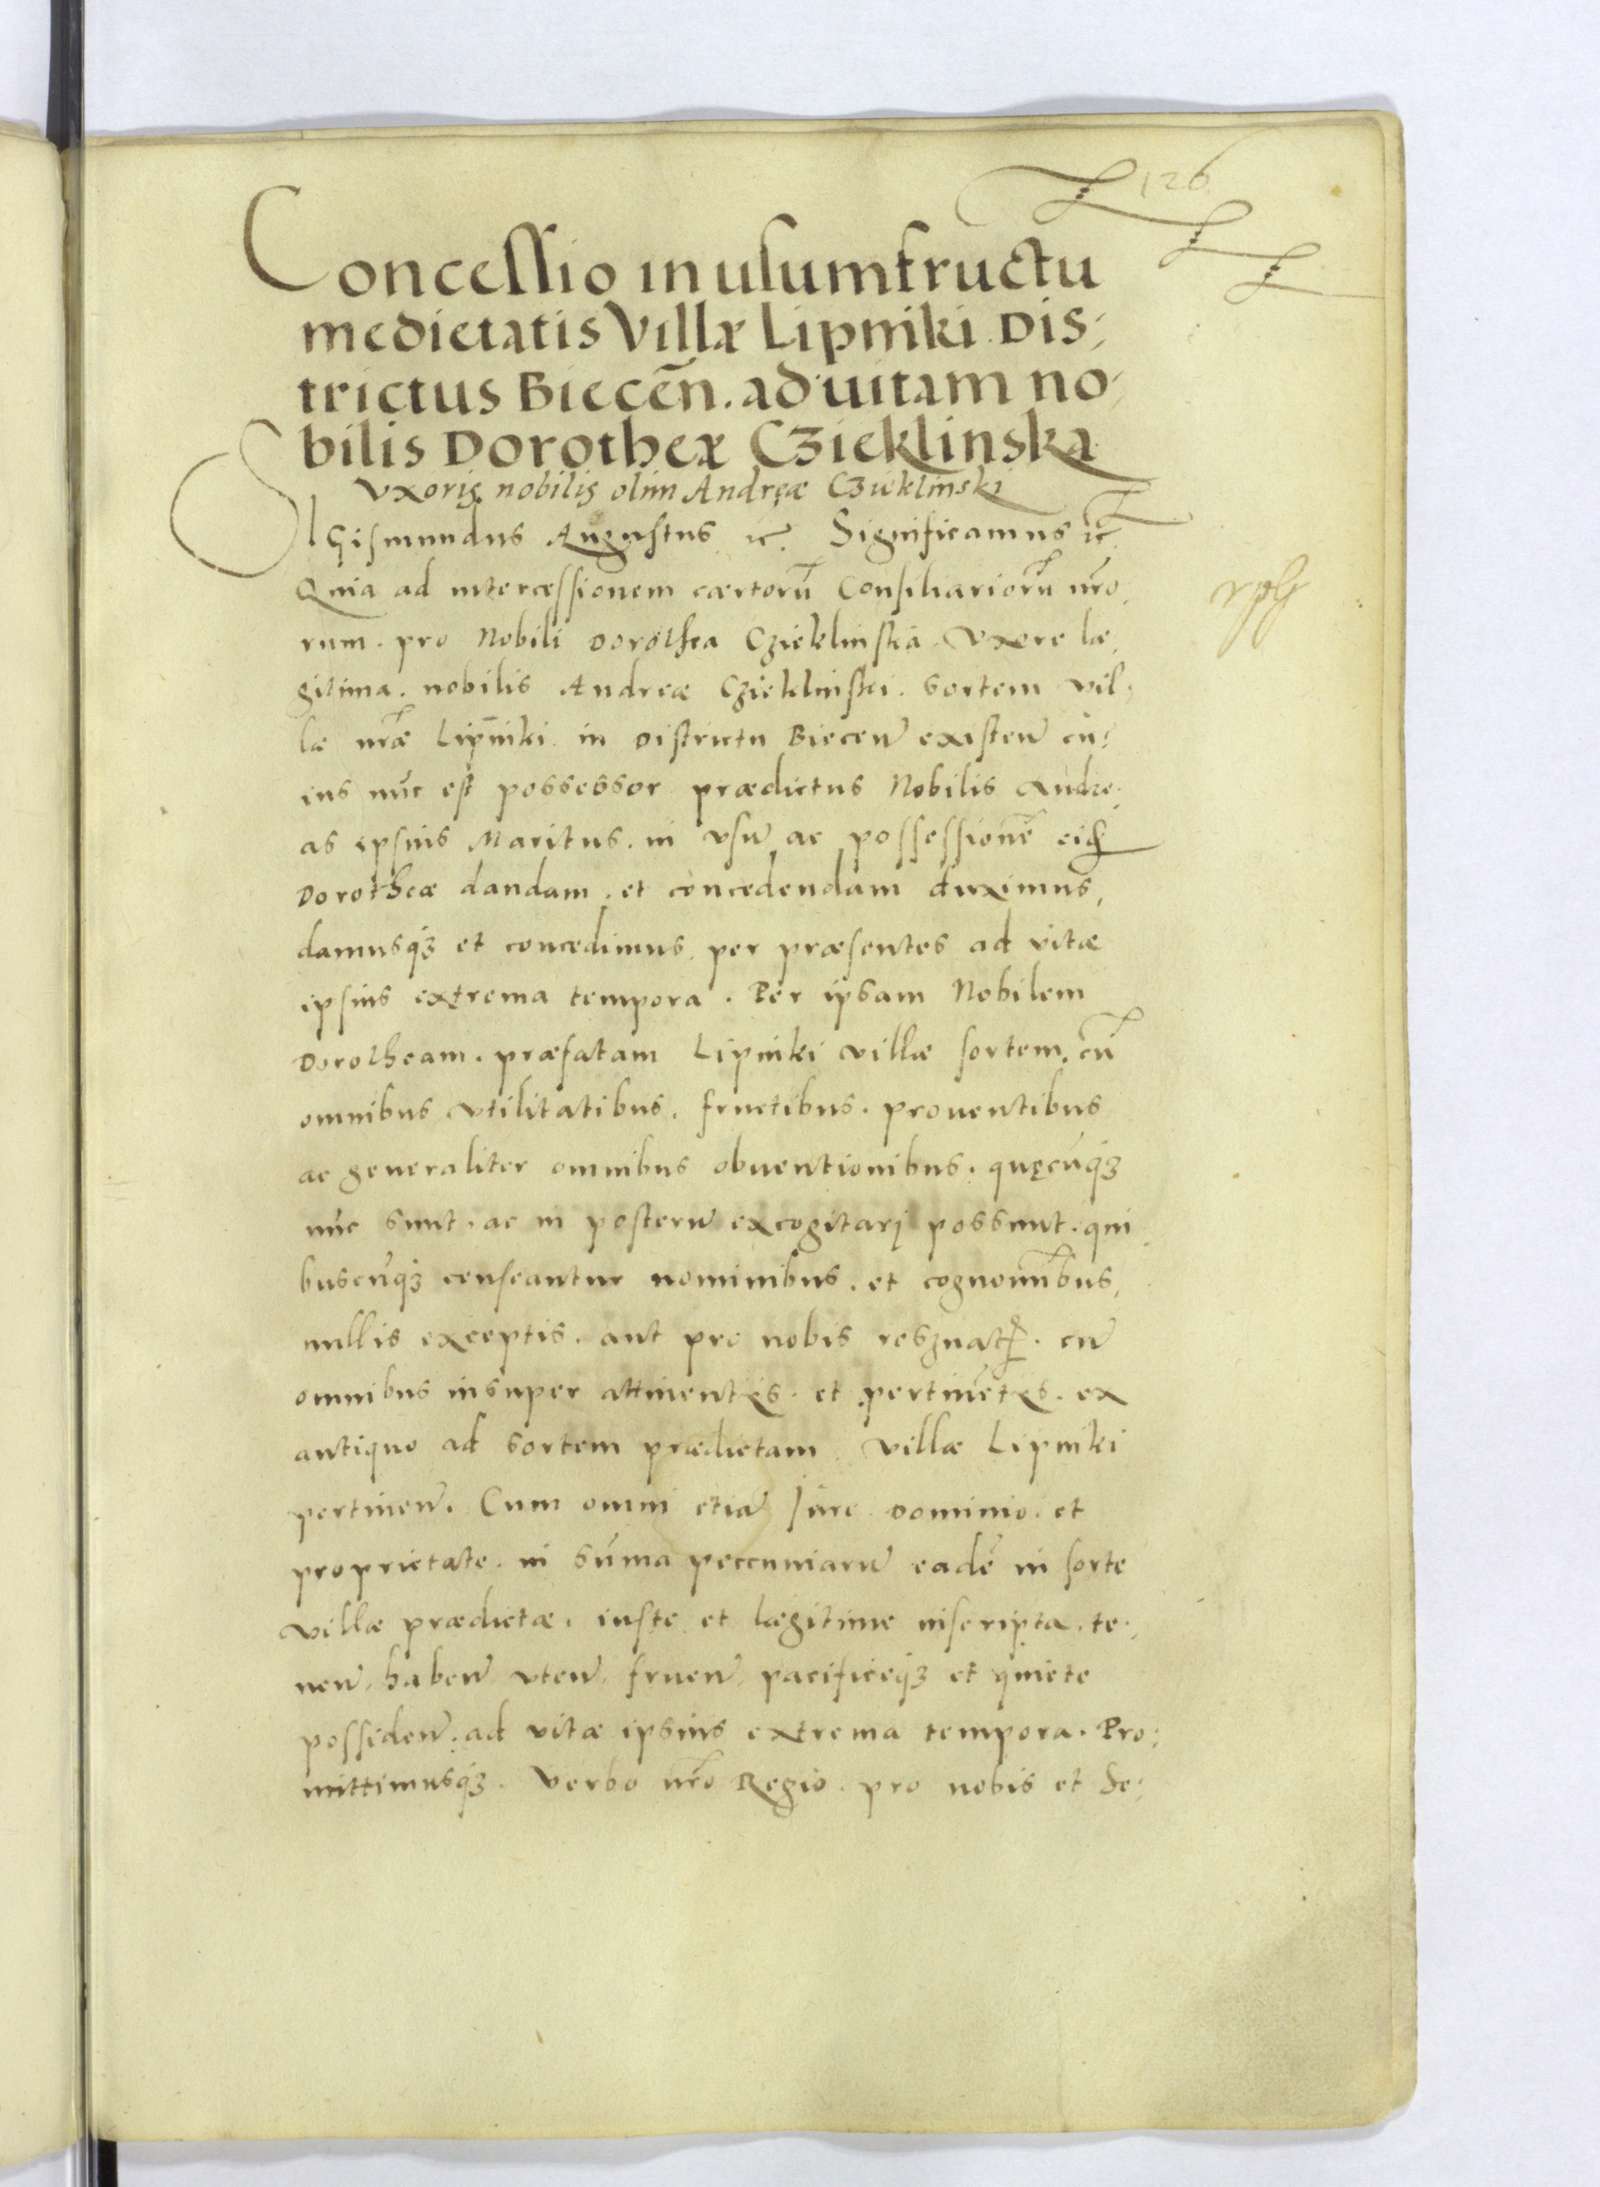 126
Concessio in usumfructu
medietatis Villæ Lipniki Dis-
trictus Biecen̄. ad uitam no-
bilis Dorotheæ Czieklinska
Vxoris nobilis olim Andreæ Czieklinski
SIGismundus Augustus etc. Significamus etc.
Quia ad intercessionem cærtorū Consiliariorū nr̄o-
rum. pro Nobili Dorothea Czieklinska. Vxore læ-
gitima. nobilis Andreæ Czieklinski. Sortem Vil-
læ nr̄æ Lipniki. in Districtu Biecen̄ existen̄ cu-
ius nūc est possessor prædictus Nobilis Andre-
as ipsius Maritus. in vsū ac possessionē eid
Dorotheæ dandam. et concedendam duximus,
damusqʒ et concedimus per præsentes ad vitæ
ipsius extrema tempora. Per ipsam Nobilem
Dorotheam. præfatam Lipniki villæ sortem. cū
omnibus vtilitatibus. fructibus. prouentibus
ac generaliter omnibus obuentionibus. quęcūqʒ
nūc sunt. ac in posterū excogitari possunt. qui-
buscūqʒ censeantur nominibus. et cognomībus,
nullis exceptis. aut pro nobis reseruatis. cū
omnibus insuper attinentijs. et pertinētijs. ex
antiquo ad sortem prædictam villæ Lipniki
pertinen̄. Cum omni etiā Iure Dominio. et
proprietate. in sūma peccuniarū eadē in sorte
villæ prædictæ. iuste et lægitime inscripta. te-
nen̄. haben̄ vten̄. fruen̄. pacificeqʒ et quiete
possiden̄. ad vitæ ipsius extrema tempora. Pro-
mittimusqʒ. Verbo nr̄o Regio. pro nobis et Se-